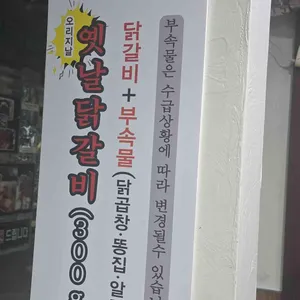 오리지날
옛날닭갈비(300g
닭갈비+부속물(닭곱창·똥집·알
부속물은 수급상황에 따라 변경될수 있습니
드립니다